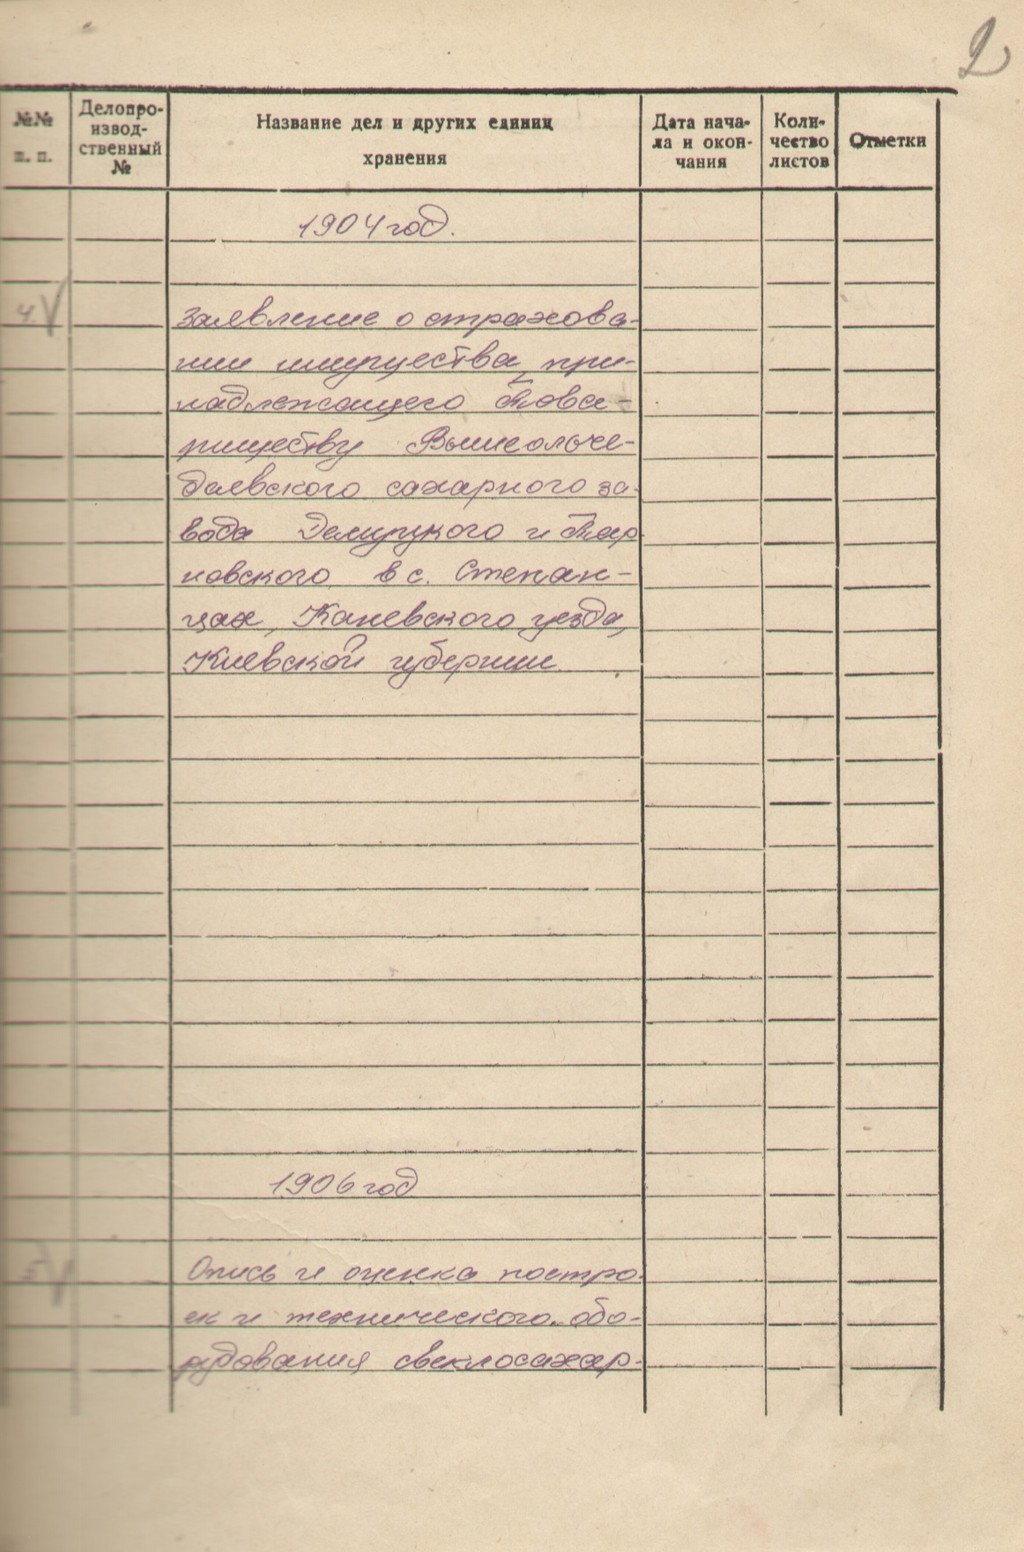 2
№№ п. п.
Делопро-
извод-
ственный
№
Название дел и других единиц
хранения
Дата нача-
ла и окон-
чания
Коли-
чество
листов
Отметки
1904 год.
4.
Заявление о страхова-
нии имущества, при-
надлежащего Това-
риществу Вышеольче-
даевского сахарного за-
вода Демуцкого и Тар
новского в с. Степан-
цах, Каневского уезда,
Киевской губернии.
1906 год
5.
Опись и оценка постро-
ек и технического обо-
рудования свеклосахар-